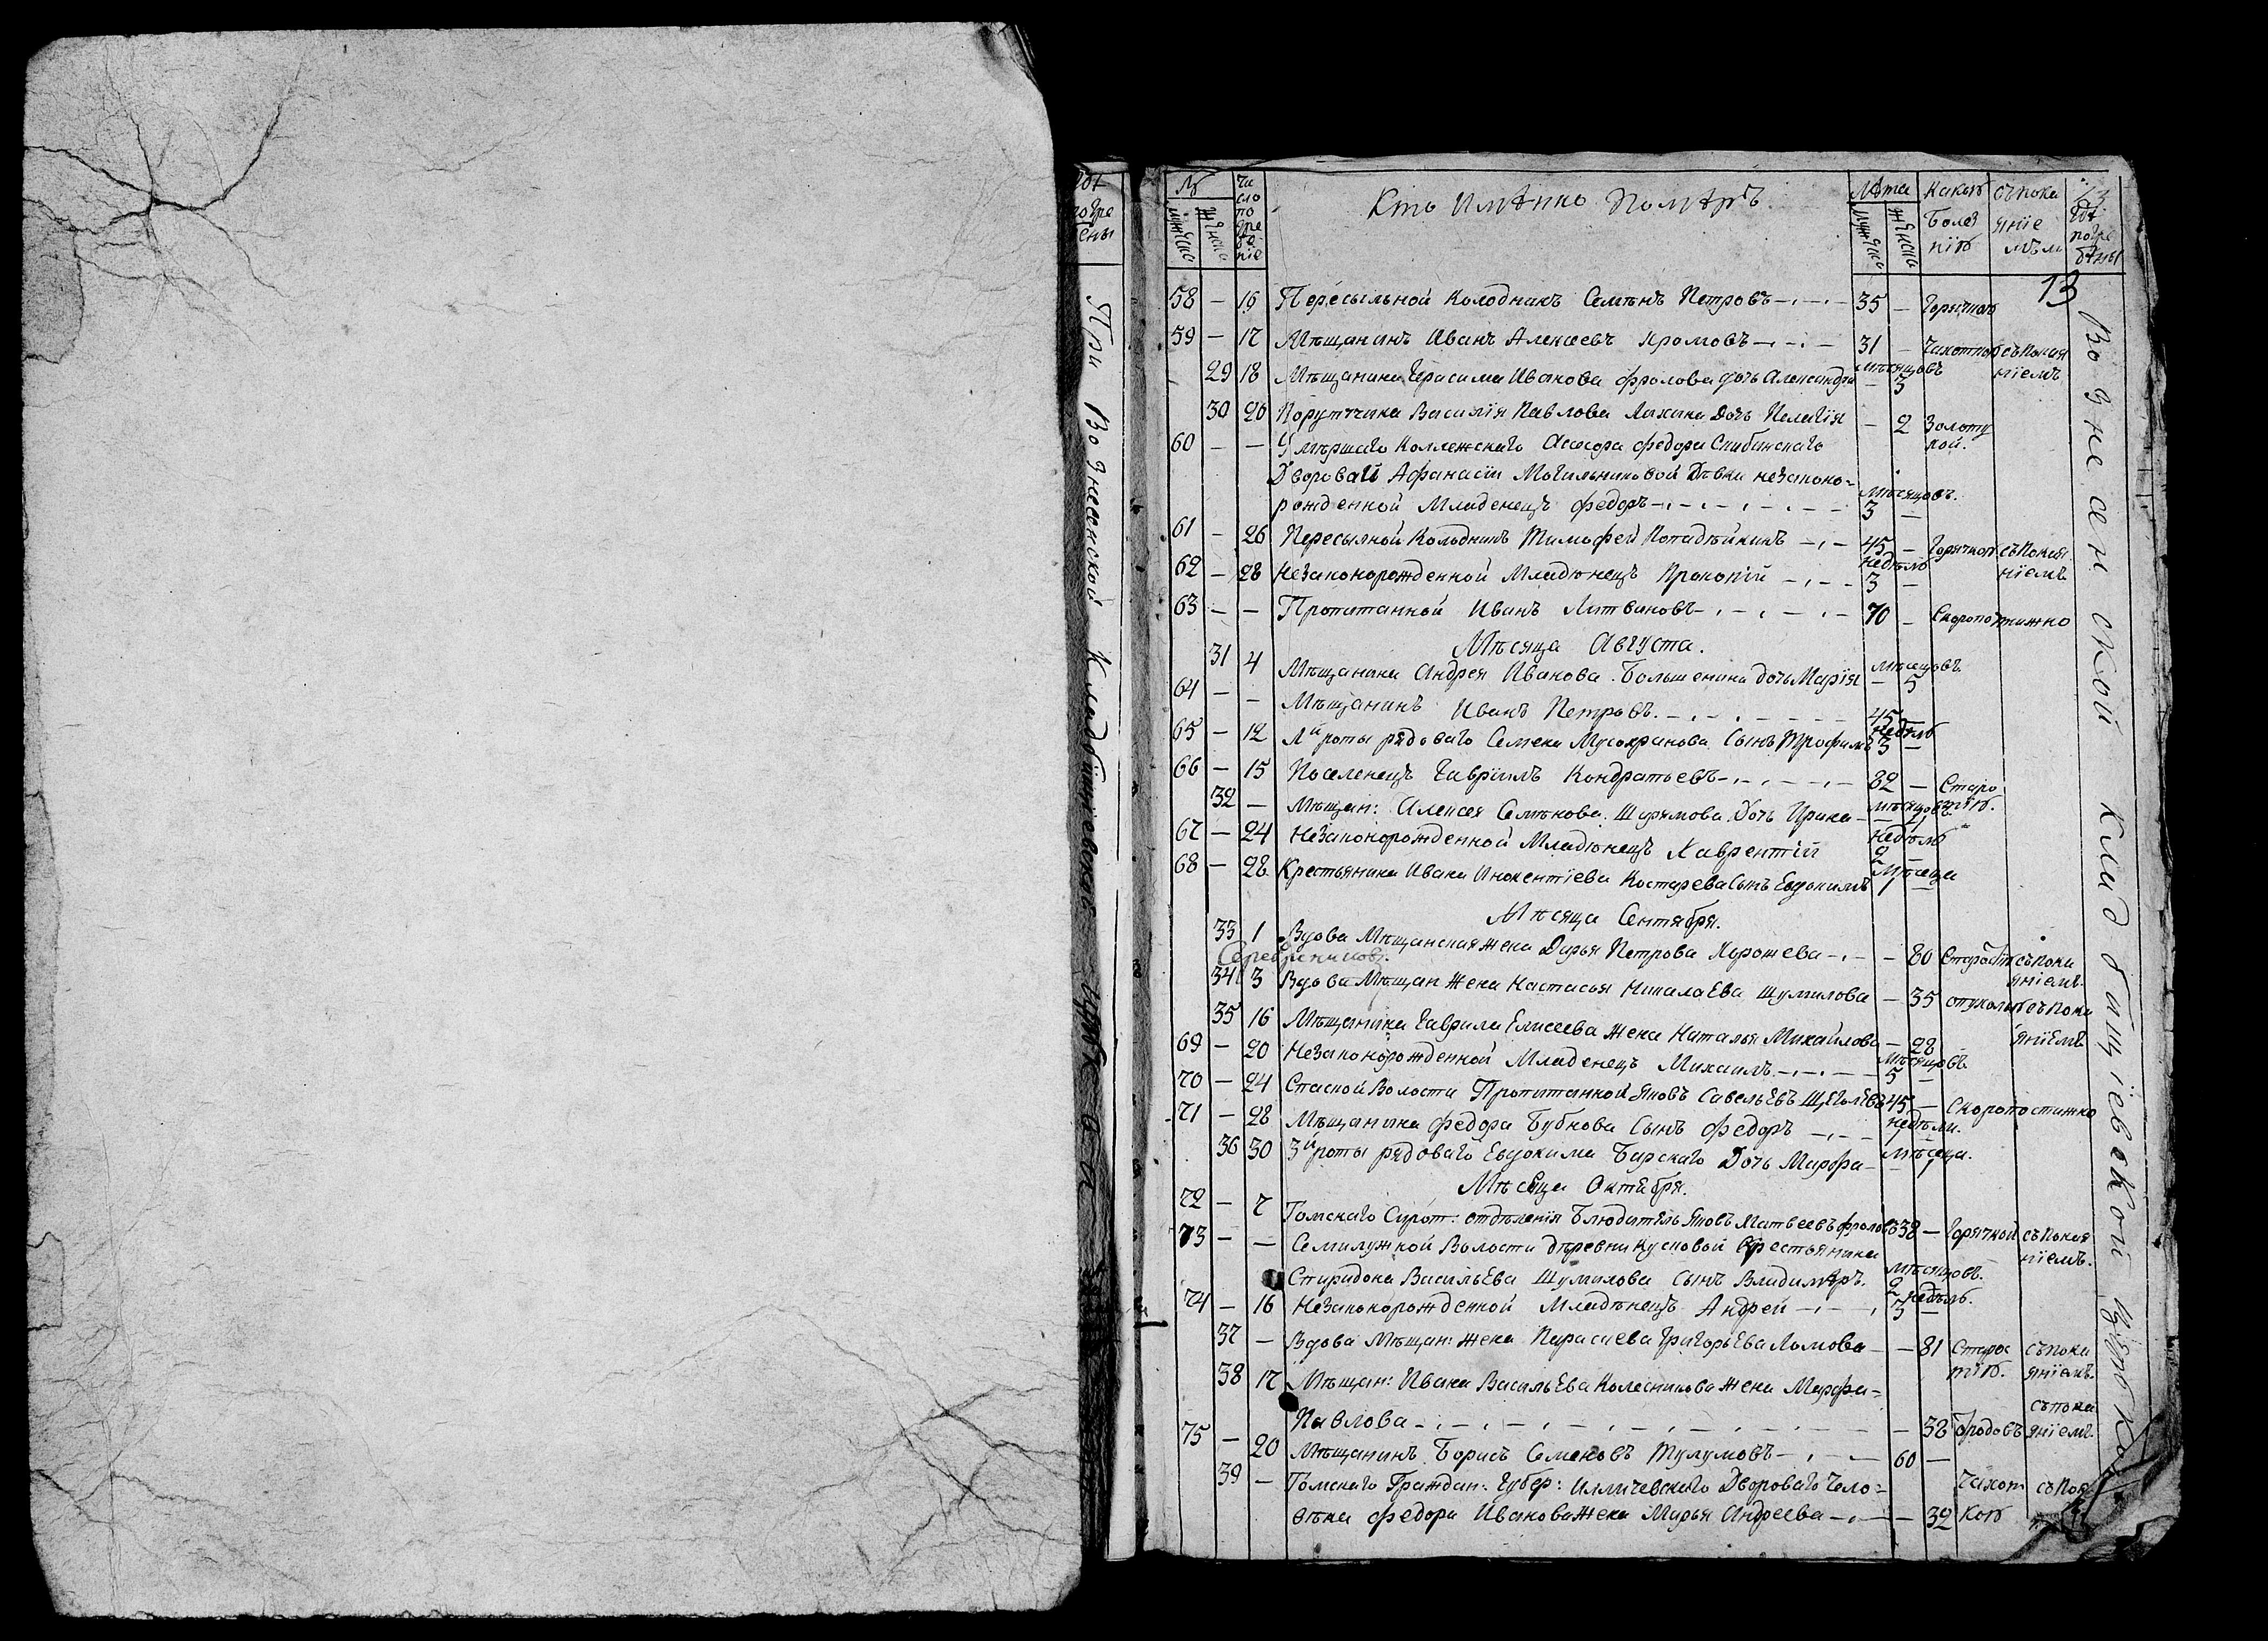 Гдѣ погре бены
При Вознесенской Кладбищіевской церкви
№ мужеска женска Число погребеніе Кто имѣнно помѣръ. Лѣта мужеска женска Какою болезнію съ покаяніемъ ли Гдѣ погребѣны
13
Вознесенской Кладбищіевской церкви
58 — 16 Пересыльной Колодникъ Семѣнъ Петровъ 35 — Горячкою
59 — 17 Мѣщанинъ Иванъ Алексеевъ Кромовъ 31 — Чахоткою съ покаяніемъ
29 18 Мѣщанина Герасима Иванова Фролова дочь Александра — месяцовъ 3
30 20 Порутчика Василія Павлова Лихина Дочь Пелагія — 2 Золотухой.
60 — — Умѣршаго Коллежскаго Асесора Федора Скибинскаго
Дворовай Афанасіи Могильниковой Дѣвки незаконо=
рожденной Младенецъ Федоръ месяцовъ. 3 —
61 — 26 Пересылной Колодникъ Тимофей Попадѣйкинъ 45 — Горячкою съ покаяніемъ
62 — 28 Незаконорожденной Младѣнецъ Прокопій недѣль 3 —
63 — — Пропитанной Иванъ Литвиновъ 70 — Скоропостижно
Мѣсяца Августа.
31 4 Мѣщанина Андрея Иванова Большенина дочь Марія — мѣсяцовъ 5
64 — — Мѣщанинъ Иванъ Петровъ. 45 —
65 — 12 Л й роты рядоваго Семена Мусохранова Сынъ Трофимъ недѣль 3 —
66 — 15 Поселенецъ Гавріилъ Кондратьевъ 82 — Старостію.
32 — Мѣщан: Алексея Семѣнова Шурямова Дочь Ирина — месяцовъ
67 — 24 Незаконорожденной Младѣнецъ Лаврентій недѣль 2 —
68 — 28 Крестьянина Ивана Инокентіева Костарева Сынъ Евдокимъ Мѣсяца 1 —
Мѣсяца Сентября.
33 1 Вдова Мѣщанская жена Дарья Петрова Хорошева — 80 Старостію съ покаяніемъ
Серебренникова.
34 3 Вдова Мѣщан Жена Настасья Николаева Шумилова — 35 опухолью съ покаяніемъ
35 16 Мѣщанина Гаврила Елисеева жена Наталья Михайлова — 28
69 — 20 Незаконорожденной Младенецъ Михаилъ мѣсяцовъ 5 —
70 — 24 Спаской Волости Пропитанной Яковъ Савельевъ Щеголевъ 45 — Скоропостижно
71 — 28 Мѣщанина Федора Бубнова Сынъ Федоръ недѣли.
36 30 3 й роты рядоваго Евдокима Барскаго Дочь Марфа — мѣсяца. 1
Мѣсяца Октября.
72 — 7 Томскаго Сирот: отдѣленія Блюдитель Яковъ Матвеевъ Фроловъ 38 — Горячкой съ покаяніемъ.
73 — — Семилужной Волости дѣревни Кусковой Крестьянина
Спиридона Васильева Шумилова сынъ Владимѣръ. мѣсяцовъ. 2 —
74 — 16 Незаконорожденной Младѣнецъ Андрей недѣль. 3 —
37 — Вдова Мѣщан: жена Парасчева Григорьева Ломова — 81 Старостію. съ покаяніемъ
38 17 Мѣщан: Ивана Васильева Колесникова жена Марфа=
Павлова — 38 Городовъ съ покаяніемъ.
75 — 20 Мѣщанинъ Борисъ Семеновъ Тулумовъ 60 —
39 — Томскаго Граждан: Губер: Илличевскаго Двороваго Чело=
вѣка Федора Иванова Жена Марья Андреева — 32 Чахоткою съ пока